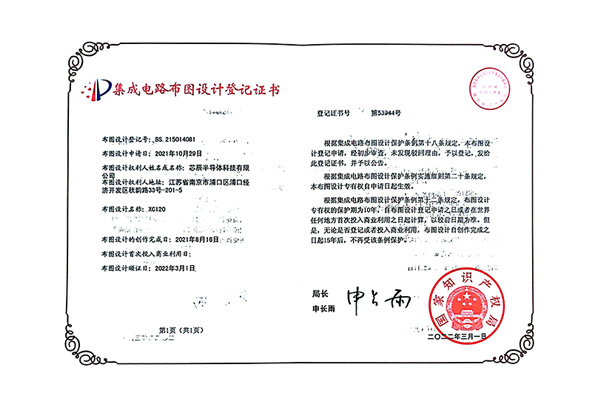 集成电路布图设计登记证书
布图设计登记号：BS. 215014081
布图设计申请日：2021年10月29日
布图设计权利人姓名或名称：芯辰半导体科技有限
公司
布图设计权利人地址：江苏省南京市浦口区浦口经
济开发区秋韵路33号-201-5
布图设计名称：XG120
布图设计的创作完成日：2021年8月16日
布图设计首次投入商业利用日：
布图设计颁证日：2022年3月1日
第1页（共1页）
登记证书号 第53944号
根据集成电路布图设计保护条例第十八条规定，本布图设
计登记申请，经初步审查，未发现驳回理由，予以登记，发给
此登记证书，并予以公告。
根据集成电路布图设计保护条例实施细则第二十条规定，
本布图设计专有权自申请日起生效。
根据集成电路布图设计保护条例第十二条规定，布图设计
专有权的保护期为10年，自布图设计登记申请之日或者在世界
任何地方首次投入商业利用之日起计算，以较前日期为准。但
是，无论是否登记或者投入商业利用，布图设计自创作完成之
日起15年后，不再受该条例保护。
局长
申长雨
申长雨
国家知识产权局
二〇二二年三月一日